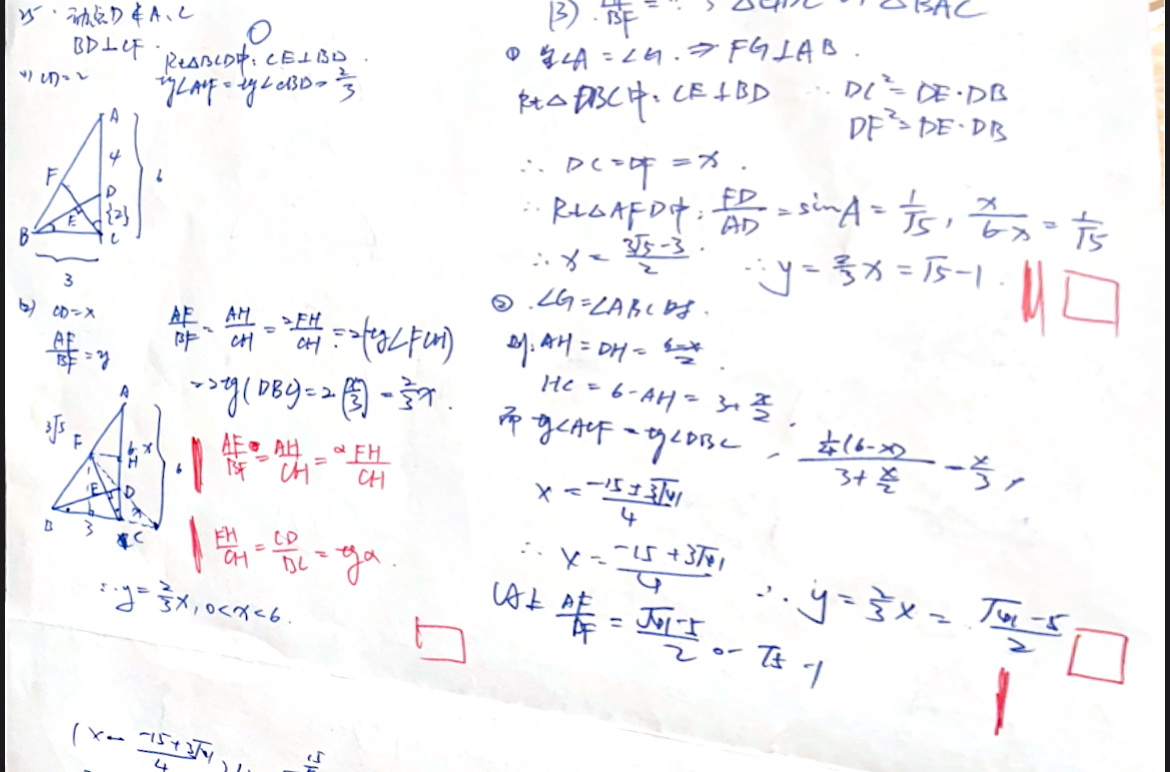 25. 动点D ∉ A、C
BD⊥CF.
Rt△BCD中: CE⊥BD.
(1) CD=2
tg∠ACF=tg∠CBD=2/3
A
4
6
F
D
E
{2}
B
C
3
(2) CD=x
AF/BF=y
AF/BF=AH/CH=2FH/CH=2(tg∠FCH)
=2tg(DBC)=2·(x/3)=2/3x.
A
3√5
F
6-x
H
6
E
D
x
B
3
C
AF/BF=AH/CH=2FH/CH
FH/CH=CD/BC=tgα.
∴y=2/3x, 0<x<6.
(x=(-15+3√41)/4
(3). /BF=
△BAC
① 当∠A=∠G. ⇒ FG⊥AB.
Rt△DBC中: CE⊥BD ∴ DC²=DE·DB
DF²=DE·DB
∴ DC=DF=x.
∴ Rt△AFD中: FD/AD=sinA=1/√5, x/6-x=1/√5
∴x=(3√5-3)/2. ∴y=2/3x=√5-1.
② .∠G=∠ABC时.
则: AH=DH=(6-x)/2
HC=6-AH=3+x/2.
而 tg∠ACF=tg∠DBC, 1/4(6-x)/(3+x/2)=x/3,
x=(-15±3√41)/4
∴ x=(-15+3√41)/4 ∴y=2/3x=(√41-5)/2
以上 AF/BF=(√41-5)/2 or √5-1